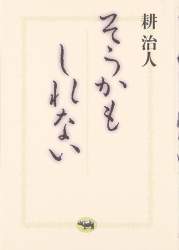 耕治人
そうかも
しれない